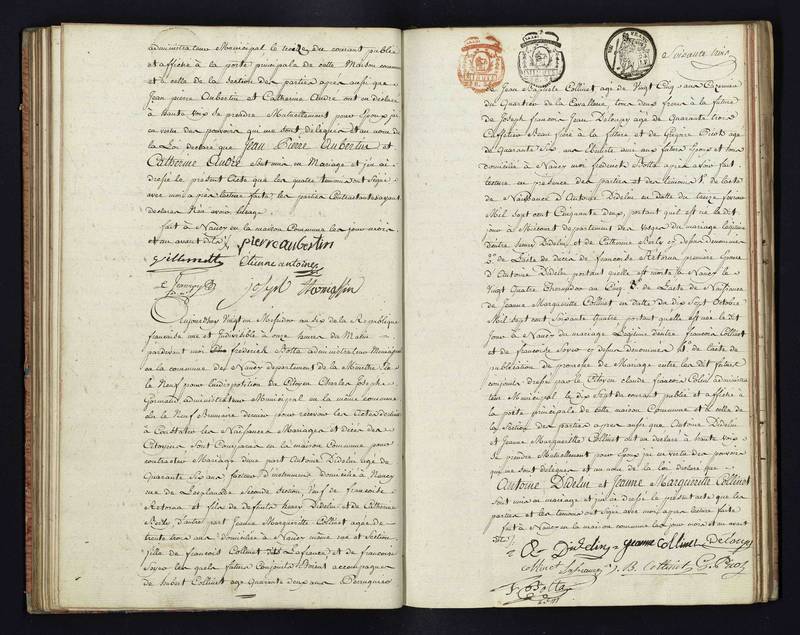 administrateur Municipal le treize du courant publié
et affiché à la porte principale de cette Maison commune
et à celle de la Section des parties après aussi que
Jean pierre Aubertin et Catherine Audré ont eu déclaré
à haute voix se prendre Mutuellement pour Epoux j'ai
en vertu des pouvoirs qui me sont délégués et au nom de
la Loi déclaré que Jean Pierre Aubertin et
Catherine Audré sont unis en Mariage et j'ai
dressé le présent acte que les quatre témoins ont signé
avec moi après lecture faite les parties Contractantes ayant
déclaré
fait à Nancy en la maison Commune les jour mois
et an avant dits
pierre aubertin
Villemotte Etienne antoine
Joseph thomassin
Aujourd'huy vingt Messidor an six de la République
française une et Indivisible à onze heures du Matin
pardevant moi frederick Botta administrateur Municipal
en la commune de Nancy departement de la Meurthe
le Neuf pour l'indisposition du Citoyen Charles Joseph
administrateur Municipal en la même commune
le Neuf Brumaire dernier pour recevoir les Actes destinés
à Constater les Naissances Mariages et décès des
Citoyens Sont Comparus en la maison Commune pour
contracter Mariage d'une part Antoine Didelin agé de
Quarante Six ans domicilié à Nancy
rue de Lesplanade Seconde Section, Veuf de françoise
Retorna et fils de défunts henry Didelin et de Catherine
d'autre part Jeanne Marguerite Collinet agée de
trente trois ans domiciliée à Nancy même rue et Section
fille de françois Collinet dit Lafrance et de françoise
les quels futurs Conjoints étoient accompagnés
de hubert Collinet agé Quarante deux ans Perruquier
Soixante trois
de Jean Baptiste Collinet agé de Vingt Cinq ans
du Quartier de la Cavallerie, tous deux freres à la future
de Joseph françois Jean Delouzy agé de Quarante trois
Caffetier Beau frere à la future et de Grégoire Picot agé
de Quarante Six ans ami aux futurs Epoux et tous
domiciliés à Nancy moi frederick Botta après avoir fait
lecture en présence des parties et des témoins 1° de l'acte
de Naissance d'Antoine Didelin en datte du treize fevrier
Mil Sept cent Cinquante deux, portant qu'il est né le dit
jour à Mirecourt departement des Vosges du mariage légitime
d'entre henry Didelin et de Catherine cy devant denommés
2° de l'acte de décès de francoise Retorna premiere femme
d'Antoine Didelin portant qu'elle est morte à Nancy le
Vingt Quatre Thermidor an Cinq 3° de l'acte de Naissance
de Jeanne Marguerite Collinet en datte du dix Sept Octobre
Mil Sept cent Soixante Quatre portant qu'elle est née le dit
jour à Nancy du mariage Légitime d'entre francois Collinet
et de francoise cy dessus denommés 4° de l'acte de
publication de promesse de Mariage entre les dits futurs
conjoints dressé par le Citoyen claude francois Colin administra
teur Municipal le dix Sept du courant publié et affiché à
la porte principale de cette maison Commune et à celle de
la Section des parties après aussi que Antoine Didelin
et Jeanne Marguerite Collinet ont eu déclaré à haute voix
se prendre Mutuellement pour Epoux j'ai en vertu des pouvoirs
qui me sont délégués et au nom de la loi déclaré que
Antoine Didelin et Jeanne Marguerite Collinet
sont unis en mariage et j'ai dressé le présent acte que les
parties et les témoins ont signé avec moi après lecture faite
fait à Nancy en la maison commune les jour mois et an avant
dits
Didelin jeanne Collinet Delouzy
Collinet J. B. Collinet G. Picot
Botta